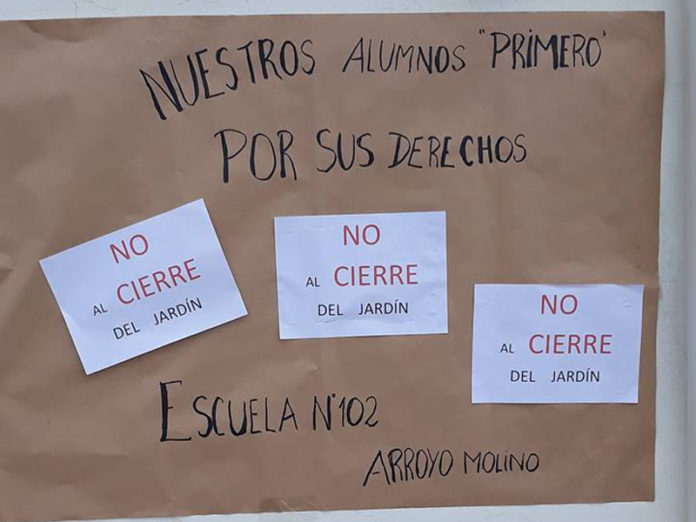 NUESTROS ALUMNOS "PRIMERO"
POR SUS DERECHOS
NO
AL CIERRE
DEL JARDÍN
NO
AL CIERRE
DEL JARDÍN
NO
AL CIERRE
DEL JARDÍN
ESCUELA N°102
ARROYO MOLINO